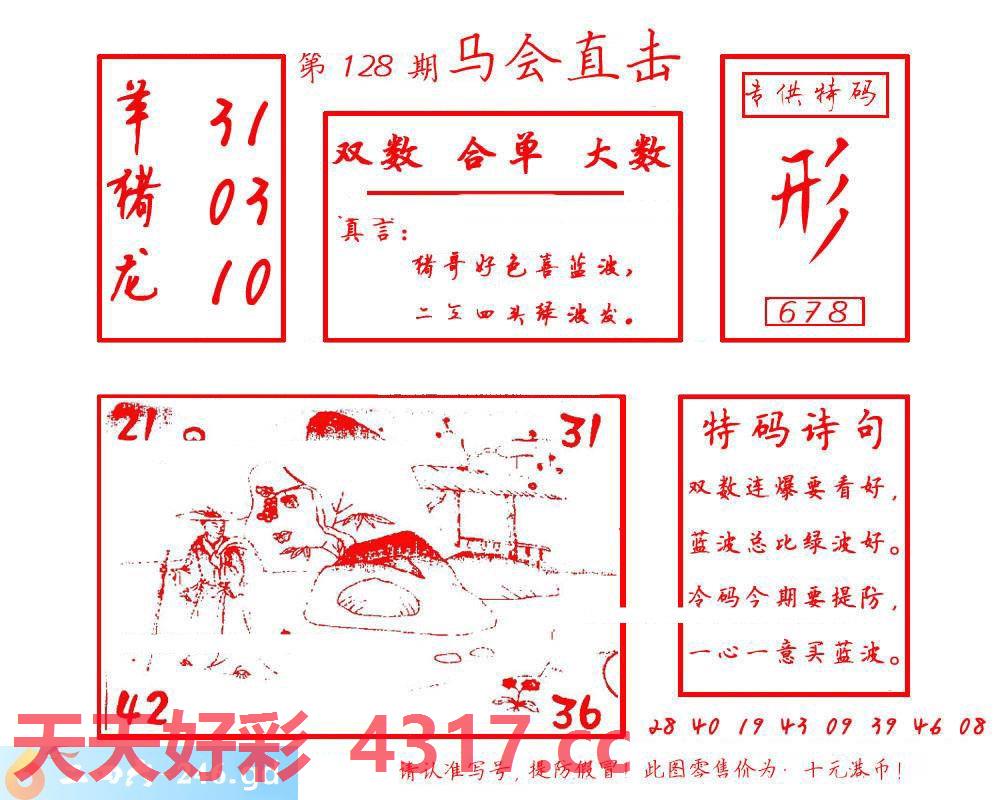 第 128 期 马会直击
羊 31
猪 03
龙 10
双数 合单 大数
真言：
猪哥好色喜蓝波，
二三四头绿波发。
专供特码
形
678
21
31
42
36
特码诗句
双数连爆要看好，
蓝波总比绿波好。
冷码今期要提防，
一心一意买蓝波。
28 40 19 43 09 39 46 08
天天好彩 4317.cc
246.gd
请认准写号，提防假冒！此图零售价为：十元港币！